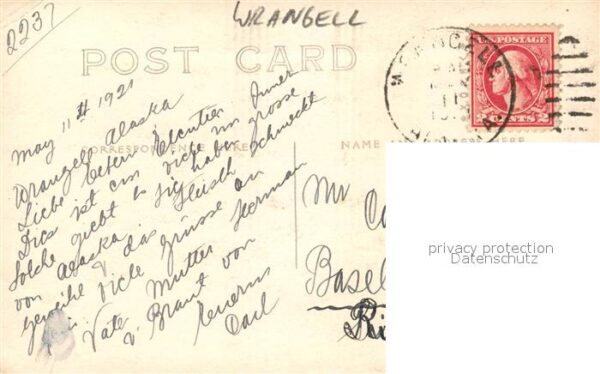 2237
WRANGELL
POST CARD
U.S. POSTAGE
2 CENTS 2
May 11th 1921
Wrangell Alaska
CORRESPONDENCE HERE
NAME AND ADDRESS HERE
Liebe Eltern
Dies ist ein
solche giebt es viele im
von Alaska haben grosse
geweihe & das Fleisch schmeckt
Viele grüsse an
Vate Mutter Herman
v Braut von
Carl
Mr Ca
Basel
Ri
privacy protection
Datenschutz